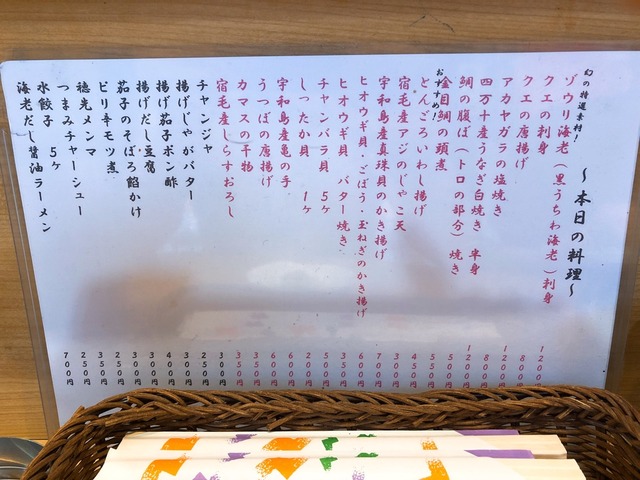 〜本日の料理〜
幻の特選素材！
ゾウリ海老（黒うちわ海老）刺身 1200円
クエの刺身 800円
クエの唐揚げ 1200円
アカヤガラの塩焼き 800円
四万十産うなぎ白焼き 半身 1200円
鯛の腹ぼ（トロの部分）焼き 500円
おすすめ！
金目鯛の頭煮 550円
とんごろいわし揚げ 450円
宿毛産アジのじゃこ天 300円
宇和島産真珠貝のかき揚げ 700円
ヒオウギ貝・ごぼう・玉ねぎのかき揚げ 600円
ヒオウギ貝 バター焼き 350円
チャンバラ貝 5ケ 500円
しったか貝 1ケ 200円
宇和島産亀の手 600円
うつぼの唐揚げ 600円
カマスの干物 350円
宿毛産しらすおろし 350円
チャンジャ 300円
揚げじゃがバター 250円
揚げ茄子ポン酢 300円
揚げだし豆腐 400円
茄子のそぼろ餡かけ 300円
ピリ辛モツ煮 350円
穂先メンマ 250円
つまみチャーシュー 350円
水餃子 5ケ 250円
海老だし醤油ラーメン 700円